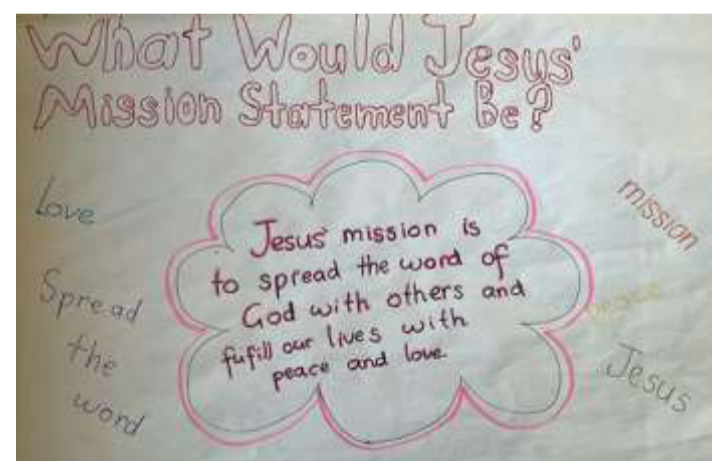 What Would Jesus'
Mission Statement Be?
Love
Spread
the
word
Jesus' mission is
to spread the word of
God with others and
fufill our lives with
peace and love.
mission
peace
Jesus